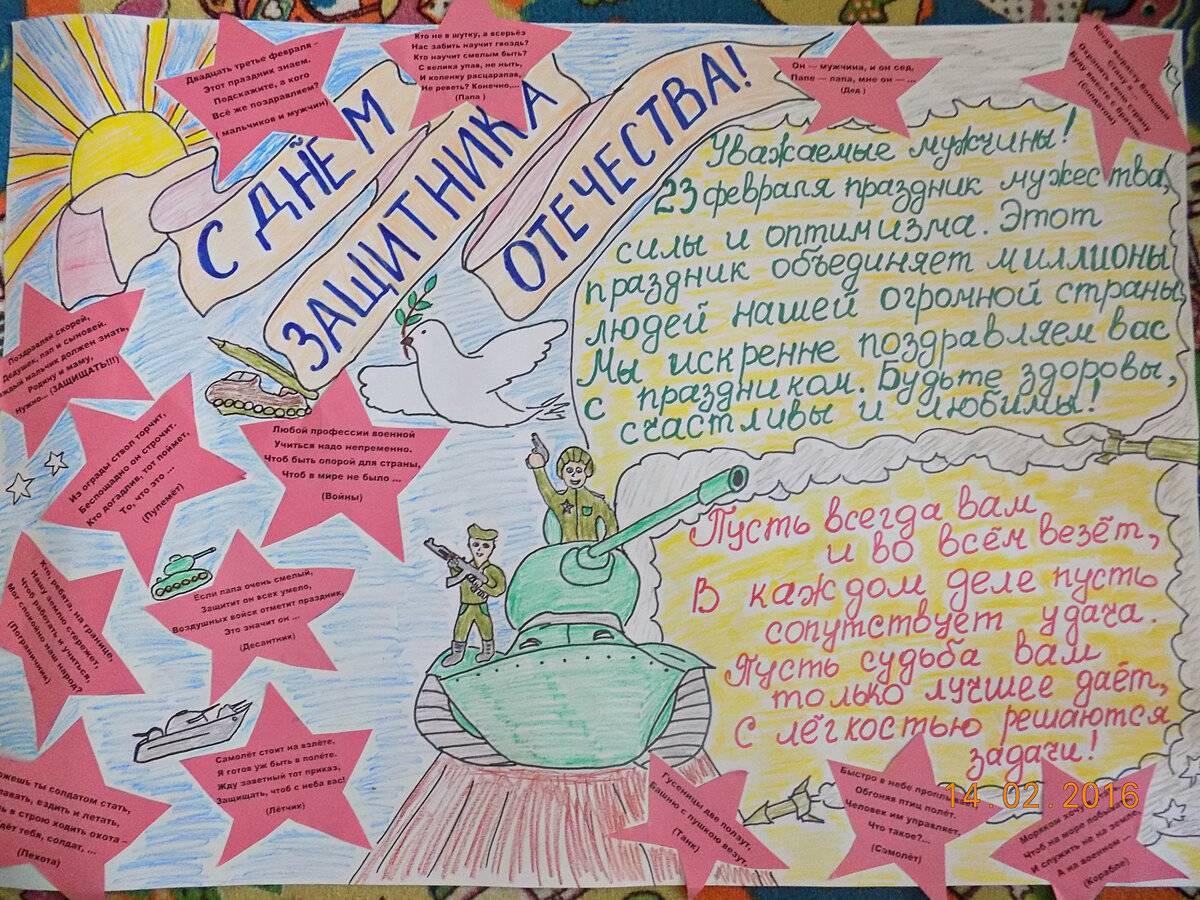 С ДНЁМ
ЗАЩИТНИКА
ОТЕЧЕСТВА!
Двадцать третье февраля –
Этот праздник знаем.
Подскажите, а кого
Всё же поздравляем?
( мальчиков и мужчин)
Кто не в шутку, а всерьёз
Нас забить научит гвоздь?
Кто научит смелым быть?
С велика упав, не ныть,
И коленку расцарапав,
Не реветь? Конечно,...
(Папа )
Он — мужчина, и он сед,
Папе — папа, мне он — ...
(Дед )
Когда вырасту большим
Стану я ...
Охранять свою страну
Буду вместе с братом
(Солдатом)
Уважаемые мужчины!
23 февраля праздник мужества,
силы и оптимизма. Этот
праздник объединяет миллионы
людей нашей огромной страны
Мы искренне поздравляем вас
с праздником. Будьте здоровы,
счастливы и любимы!
Поздравляй скорей,
Дедушек, пап и сыновей.
аждый мальчик должен знать,
Родину и маму,
Нужно... (ЗАЩИЩАТЬ!!!)
Из ограды ствол торчит,
Беспощадно он строчит.
Кто догадлив, тот поймет,
То, что это ...
(Пулемёт)
Любой профессии военной
Учиться надо непременно.
Чтоб быть опорой для страны,
Чтоб в мире не было ...
(Войны)
Кто, ребята, на границе,
Нашу землю стережет,
Чтоб работать и учиться,
Мог спокойно наш народ?
(Пограничник)
Если папа очень смелый,
Защитит он всех умело,
Воздушных войск отметит праздник,
Это значит он ...
(Десантник)
Самолёт стоит на взлёте,
Я готов уж быть в полёте.
Жду заветный тот приказ,
Защищать, чтоб с неба вас!
(Лётчик)
ожешь ты солдатом стать,
авать, ездить и летать,
ь в строю ходить охота –
дёт тебя, солдат, ...
(Пехота)
Пусть всегда вам
и во всём везёт,
В каждом деле пусть
сопутствует удача.
Пусть судьба вам
только лучшее даёт,
С лёгкостью решаются
задачи!
Гусеницы две ползут,
Башню с пушкою везут.
(Танк)
Быстро в небе проплы
Обгоняя птиц полёт.
Человек им управляет,
Что такое?...
(Самолёт)
Моряком хочу
Чтоб на море побы
И служить не на земле,
А на военном ...
(Корабле)
14.02.2016